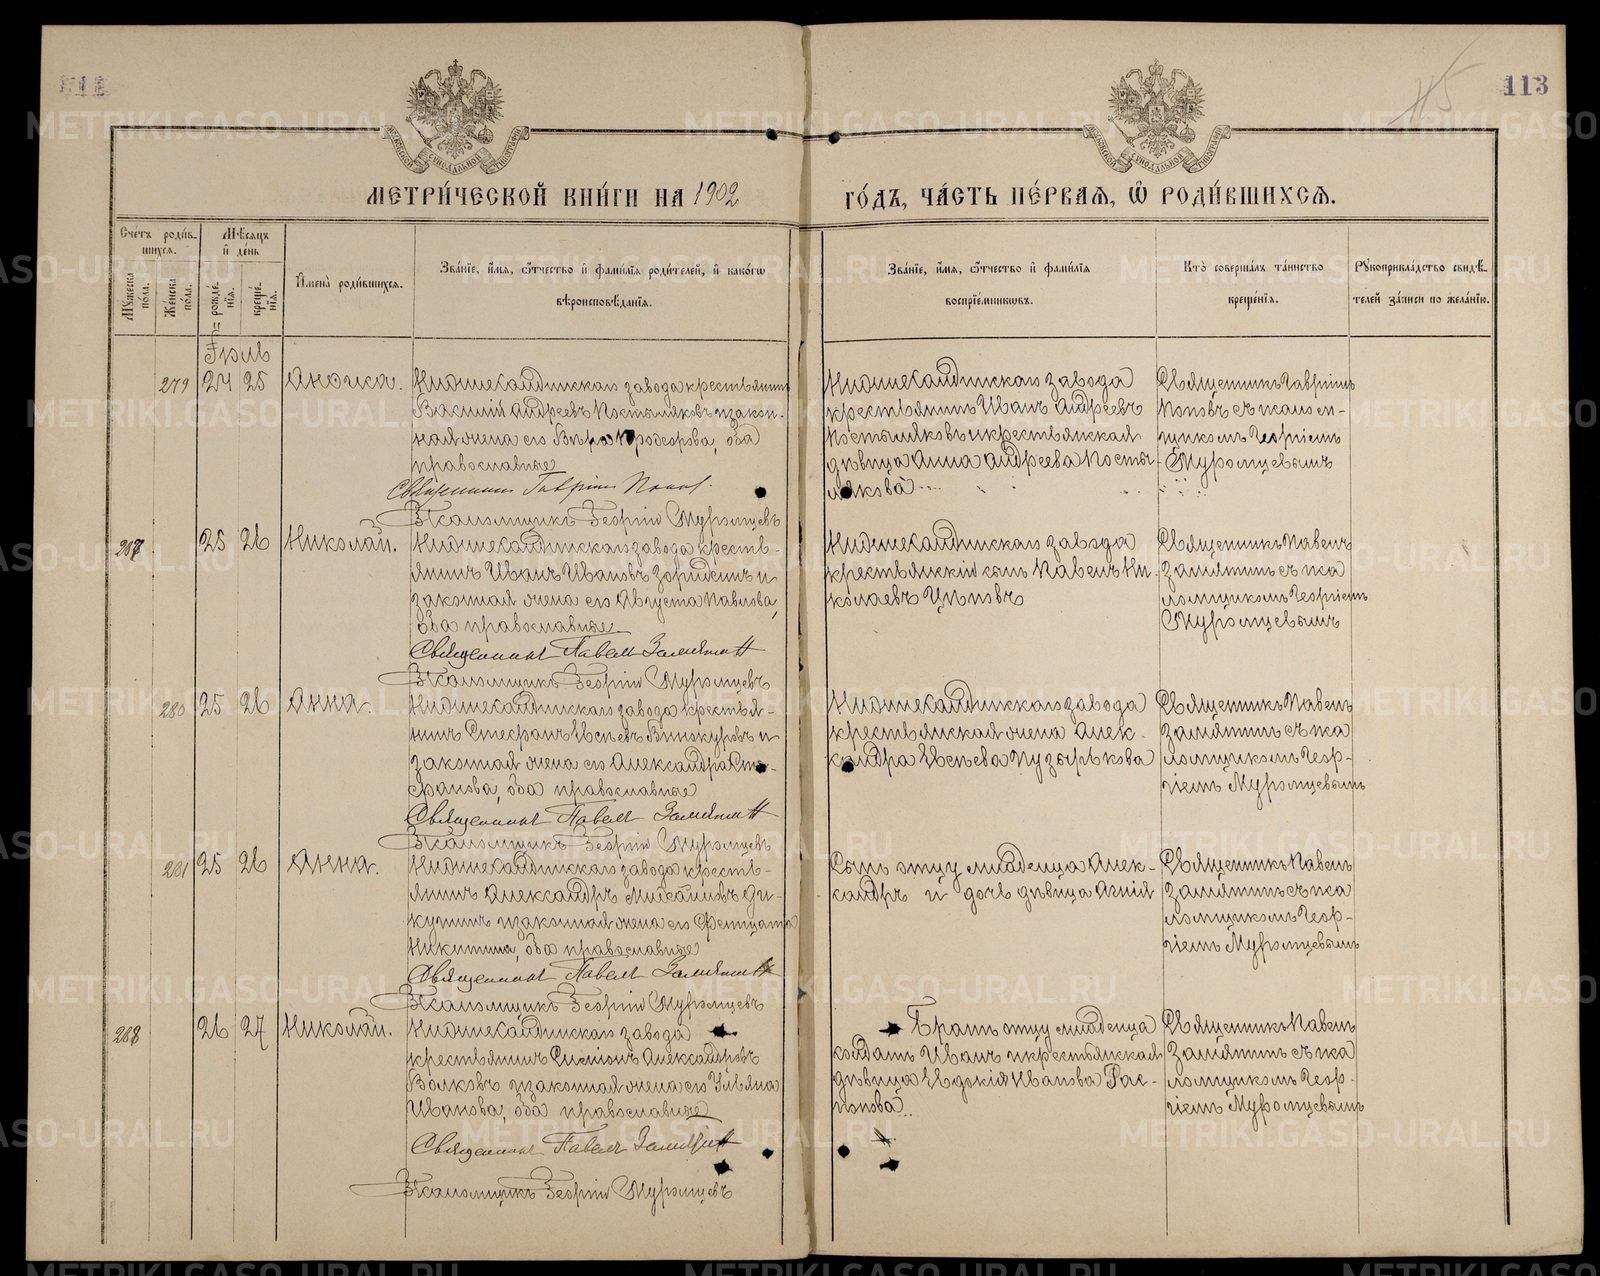 113
115
МЕТРИ́ЧЕСКОЙ КНИ́ГИ НА 1902 ГО́ДЪ, ЧА́СТЬ ПЕ́РВАЯ, Ѡ РОДИ́ВШИХСЯ.
Сче́тъ роди́в-
шихся.
Му́жеска по́ла.
Же́нска по́ла.
Мѣ́сяцъ и де́нь
рожде́нїя.
креще́нїя.
Имена̀ роди́вшихся.
Зва́нїе, и́мя, ѻ́тчество и фами́лїя роди́телей, и како́гѡ
вѣроисповѣ́данїя.
Зва́нїе, и́мя, ѻ́тчество и фами́лїя
воспрїе́мникѡвъ.
Кто̀ соверша́лъ та́инство
креще́нїя.
Рꙋкоприкла́дство свидѣ́-
телей за́писи по жела́нїю.
Іюль
279 24 25
Нижнесалдинскаго завода крестьянинъ
Василій Андреевъ Костылаковъ и закон-
ная жена его Вѣра Прохорова, оба
православные
Священникъ Гавріилъ Поповъ.
Псаломщикъ Георгій Муромцевъ
Нижнесалдинскаго завода
крестьянинъ Иванъ Андреевъ
Костылаковъ и крестьянская
дѣвица Анна Андреева Косты-
лакова
Священникъ Гавріилъ
Поповъ съ псалом-
щикомъ Георгіемъ
Муромцевымъ
287 25 26 Николай.
Нижнесалдинскаго завода кресть-
янинъ Иванъ Ивановъ Зорихинъ и
законная жена его Августа Павлова,
оба православные
Священникъ Павелъ Замятинъ
Псаломщикъ Георгій Муромцевъ
Нижнесалдинскаго завода
крестьянскій сынъ Павелъ Ни-
колаевъ Цѣповъ
Священникъ Павелъ
Замятинъ съ пса
ломщикомъ Георгіемъ
Муромцевымъ
280 25 26 Анна.
Нижнесалдинскаго завода крестья-
нинъ Стефанъ Евсѣевъ Винокуровъ и
законная жена его Александра Сте-
фанова, оба православные
Священникъ Павелъ Замятинъ
Псаломщикъ Георгій Муромцевъ
Нижнесалдинскаго завода
крестьянская жена Алек-
сандра Евсѣева Пузырькова
Священникъ Павелъ
Замятинъ съ пса
ломщикомъ Геор-
гіемъ Муромцевымъ
281 25 26 Анна.
Нижнесалдинскаго завода кресть-
янинъ Александръ Михайловъ Ди-
кушинъ и законная жена его Фетиѡната
Никитина, оба православные
Священникъ Павелъ Замятинъ
Псаломщикъ Георгій Муромцевъ
Сынъ отцу младенца Алек-
сандръ и дочь дѣвица Агнія
Священникъ Павелъ
Замятинъ съ пса
ломщикомъ Геор-
гіемъ Муромцевымъ
288 26 27 Николай.
Нижнесалдинскаго завода
крестьянинъ Симеонъ Александровъ
Волковъ и законная жена его Ульяна
Иванова, оба православные
Священникъ Павелъ Замятинъ
Псаломщикъ Георгій Муромцевъ
Братъ отцу младенца
солдатъ Иванъ и крестьянская
дѣвица Евдокія Иванова Рас-
попова
Священникъ Павелъ
Замятинъ съ пса
ломщикомъ Геор-
гіемъ Муромцевымъ
METRIKI.GASO-URAL.RU